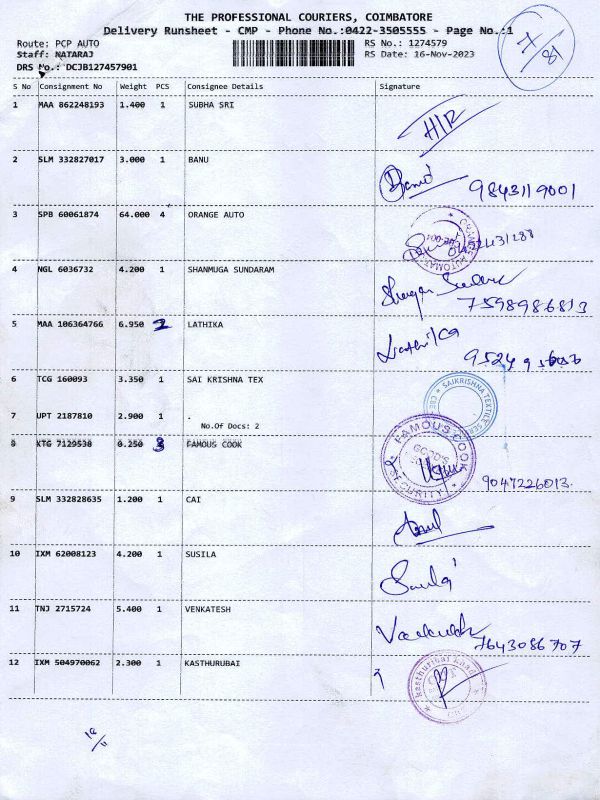 THE PROFESSIONAL COURIERS, COIMBATORE
Delivery Runsheet - CMP - Phone No.:0422-3505555 - Page No.:1
Route: PCP AUTO RS No.: 1274579
Staff: NATARAJ RS Date: 16-Nov-2023
DRS No.: DCJB127457901
S No Consignment No Weight PCS Consignee Details Signature
1 MAA 862248193 1.400 1 SUBHA SRI
H/R
2 SLM 332827017 3.000 1 BANU
9843119001
3 SPB 60061874 64.000 4 ORANGE AUTO
4 NGL 6036732 4.200 1 SHANMUGA SUNDARAM
7598986813
5 MAA 106364766 6.950 2 LATHIKA
Lathika
6 TCG 160093 3.350 1 SAI KRISHNA TEX
SAIKRISHNA
7 UPT 2187810 2.900 1 .
No.Of Docs: 2
8 KTG 7129538 0.250 3 FAMOUS COOK
FAMOUS COOK
SECURITY
9047226013.
9 SLM 332828635 1.200 1 CAI
10 IXM 62008123 4.200 1 SUSILA
11 TNJ 2715724 5.400 1 VENKATESH
7643086707
12 IXM 504970062 2.300 1 KASTHURUBAI